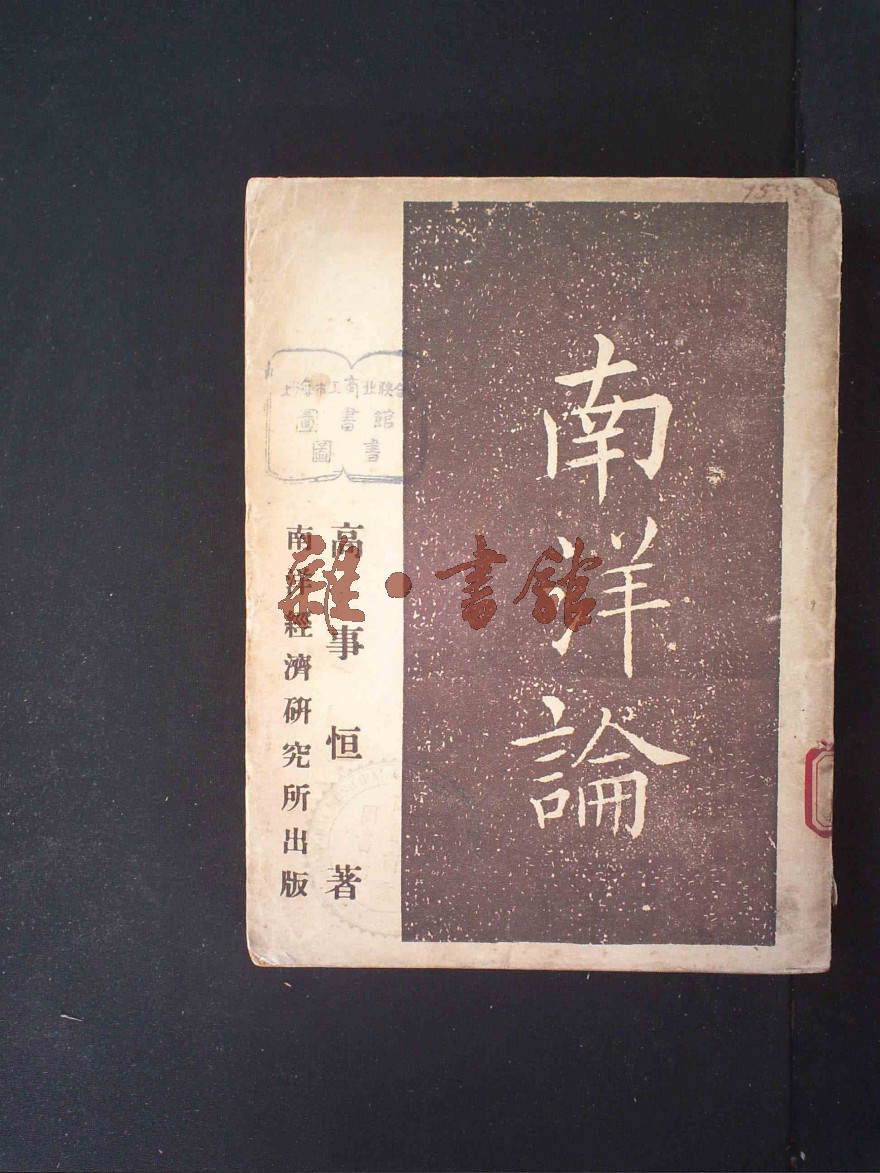 南洋論
高事恒 著
南洋經濟研究所出版
上海市工商业联合
圖書館
圖書
雜·書館